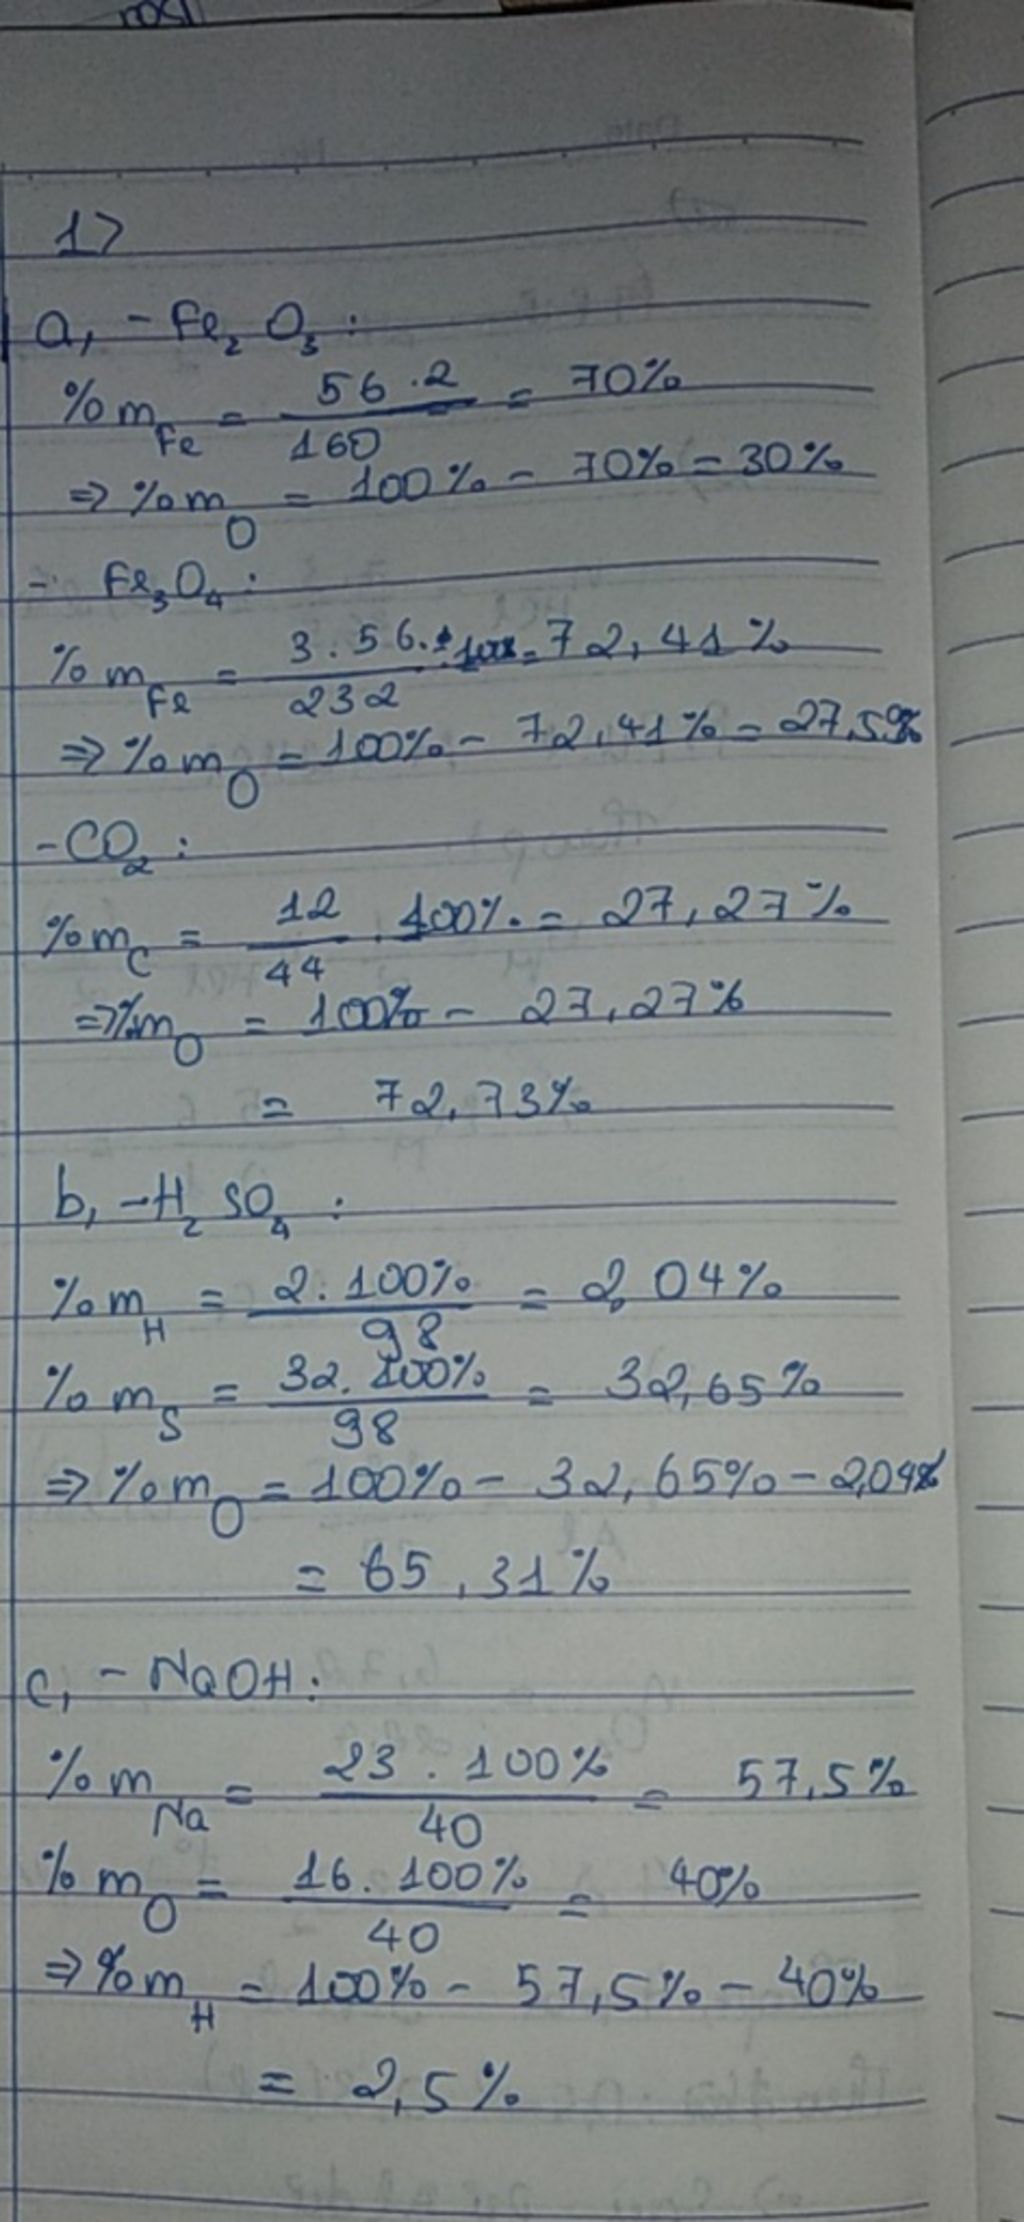 1>
a, - Fe₂O₃ :
%m_Fe = 56.2/160 = 70%
=> %m_O = 100% - 70% = 30%
- Fe₃O₄ :
%m_Fe = 3.56./232 .100% = 72,41%
=> %m_O = 100% - 72,41% = 27,59%
- CO₂ :
%m_C = 12/44 . 100% = 27,27%
=> %m_O = 100% - 27,27%
= 72,73%
b, - H₂SO₄ :
%m_H = 2.100%/98 = 2,04%
%m_S = 32.100%/98 = 32,65%
=> %m_O = 100% - 32,65% - 2,04%
= 65,31%
c, - NaOH :
%m_Na = 23.100%/40 = 57,5%
%m_O = 16.100%/40 = 40%
=> %m_H = 100% - 57,5% - 40%
= 2,5%